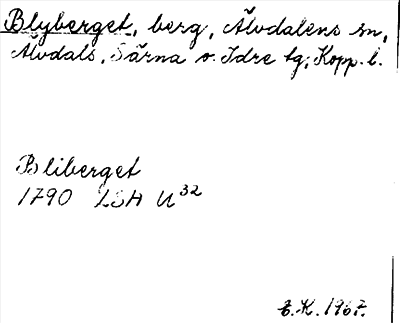 Blyberget, berg, Älvdalens sn,
Älvdals, Särna o. Idre tg, Kopp. l.
Bliberget
1790 LSA U 32
E.K. 1967.